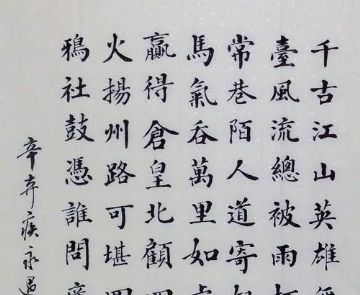 千古江山英雄無
臺風流總被雨打
常巷陌人道寄奴
馬氣吞萬里如虎
贏得倉皇北顧四
火揚州路可堪回
鴉社鼓憑誰問廉
辛弃疾永遇